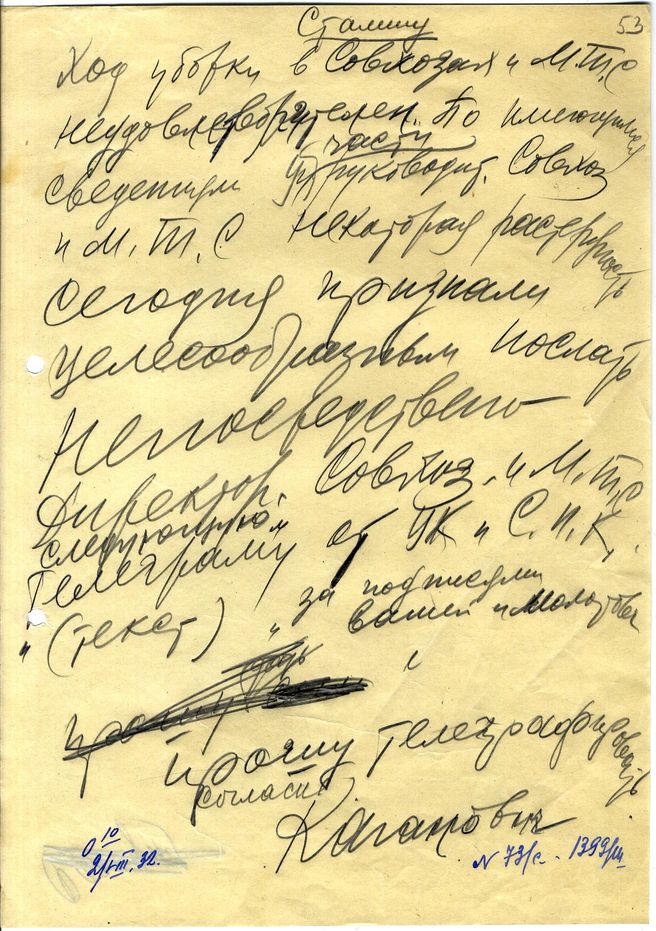 53
Сталину
Ход уборки в Совхозах и М.Т.С
неудовлетворителен. По имеющимся
сведениям у части руководит. Совхоз
и М.Т.С некоторая растерянность
Сегодня признали
целесообразным послать
непосредствено
Директор. Совхоз. и М.Т.С
следующую
телеграму от ЦК и С.Н.К.
"(текст)" за подписями
вашей и Молотова
прошу
прошу телеграфировать
согласие
Каганович
10
2/VIII.32.
N 73/с. 1399/ш